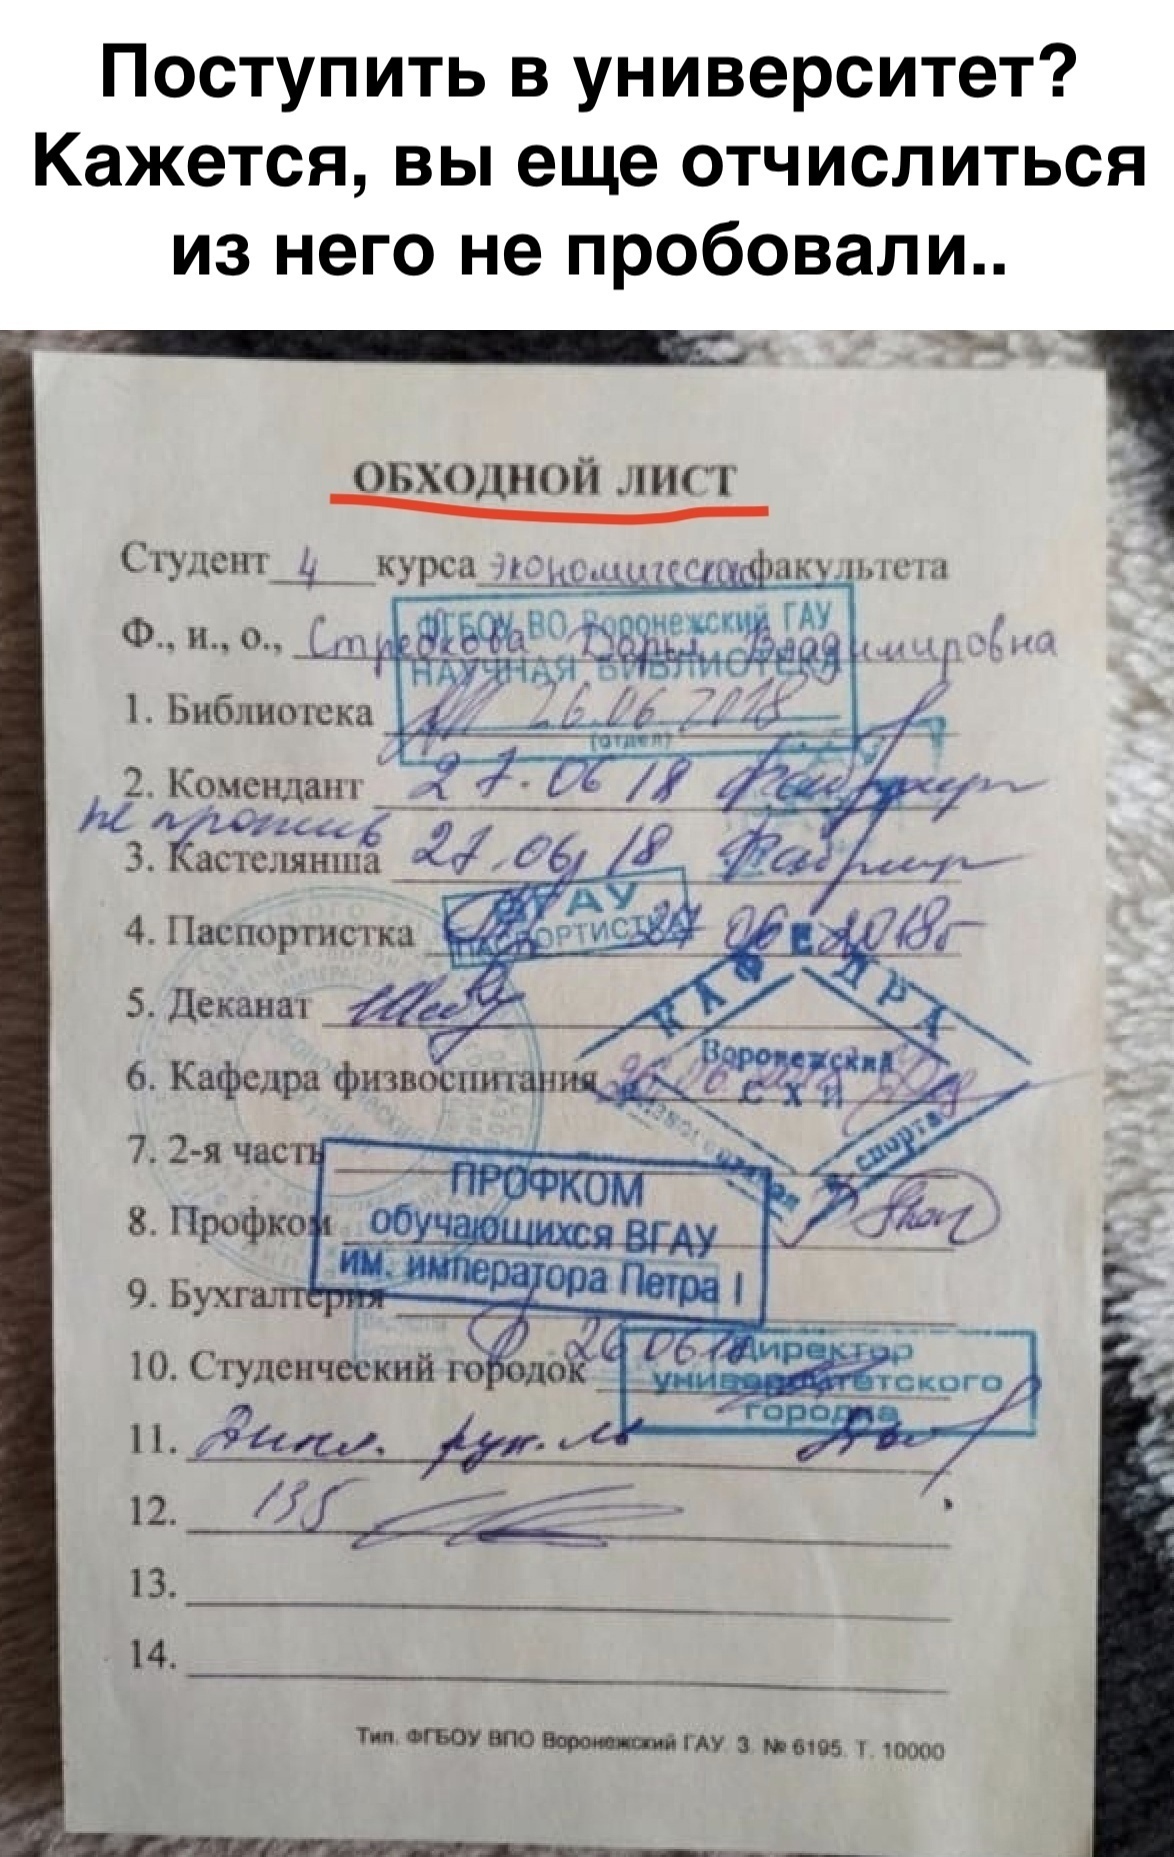 Поступить в университет?
Кажется, вы еще отчислиться
из него не пробовали..
ОБХОДНОЙ ЛИСТ
Студент 4 курса экономический факультета
Ф., и., о., Стредкова Дарья Владимировна
ФГБОУ ВО Воронежский ГАУ
НАУЧНАЯ БИБЛИОТЕКА
1. Библиотека 26.06.2018
(отдел)
2. Комендант 27.06 18
не против
3. Кастелянша 27.06 18
ВГАУ
ПАСПОРТИСТКА
4. Паспортистка 27 06 2018г
5. Деканат
КАФЕДРА
Воронежский
СХИ
спорта
6. Кафедра физвоспитания 26.06
7. 2-я часть
ПРОФКОМ
8. Профком обучающихся ВГАУ
им. императора Петра I
9. Бухгалтерия
26 06 18
10. Студенческий городок
Директор
университетского
городка
11.
12. 135
13.
14.
Тип. ФГБОУ ВПО Воронежский ГАУ З. № 6195. Т. 10000